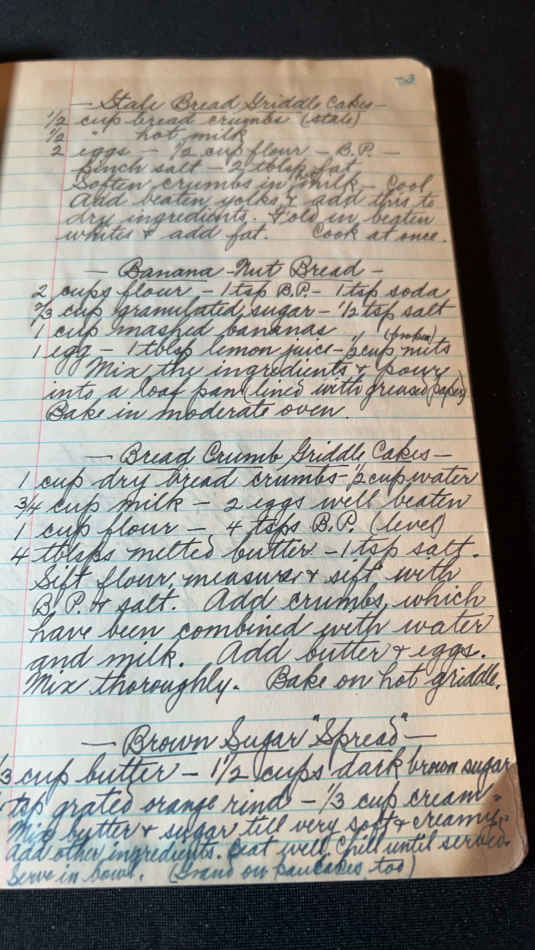 — Stale Bread Griddle Cakes —
1/2 cup bread crumbs (stale)
1/2 " hot milk
2 eggs — 1/2 cup flour — B.P. —
pinch salt — 2 tblsp fat
Soften crumbs in milk — Cool
Add beaten yolks & add this to
dry ingredients. Fold in beaten
whites & add fat. Cook at once.
— Banana-Nut Bread —
2 cups flour — 1 tsp B.P. — 1 tsp soda
2/3 cup granulated sugar — 1/2 tsp salt
1 cup mashed bananas (broken)
1 egg — 1 tblsp lemon juice — 1/2 cup nuts
Mix the ingredients & pour
into a loaf pan (lined with greased paper)
Bake in moderate oven.
— Bread Crumb Griddle Cakes —
1 cup dry bread crumbs — 1/2 cup water
3/4 cup milk — 2 eggs well beaten
1 cup flour — 4 tsps B.P. (level)
4 tblsps melted butter — 1 tsp salt.
Sift flour, measure & sift with
B.P. & salt. Add crumbs, which
have been combined with water
and milk. Add butter & eggs.
Mix thoroughly. Bake on hot griddle.
— Brown Sugar "Spread" —
/3 cup butter — 1 1/2 cups dark brown sugar
tsp grated orange rind — 1/3 cup cream —
Mix butter & sugar till very soft & creamy.
Add other ingredients. Beat well. Chill until served.
Serve in bowl. (Grand on pancakes, too)